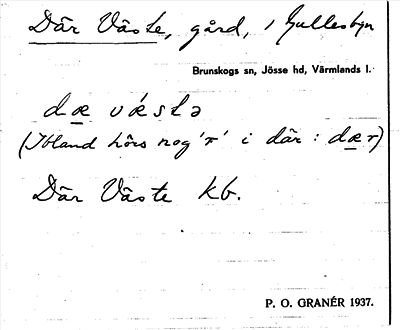 Där Väste, gård, i Gullesbyn
Brunskogs sn, Jösse hd, Värmlands l.
dæ væstə
(Ibland hörs nog 'r' i där: dær)
Där Väste kb.
P. O. GRANÉR 1937.